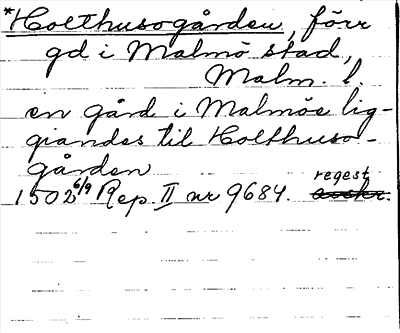 *Holthusogården, förr
gd i Malmö stad,
Malm. l.
en gård i Malmöe lig-
giandes til Holthuso-
gården
1502 6/9 Rep. II nr 9684. regest
avskr.